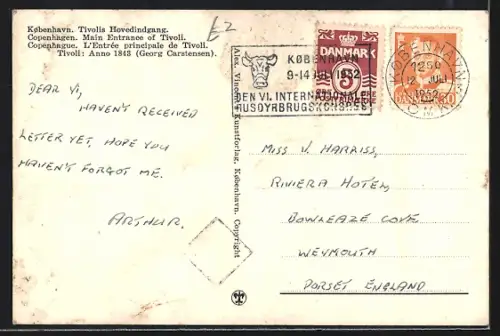 København. Tivolis Hovedindgang.
Copenhagen. Main Entrance of Tivoli.
Copenhague. L'Entrée principale de Tivoli.
Tivoli: Anno 1843 (Georg Carstensen).
£2
DEAR VI,
HAVEN'T RECEIVED
LETTER YET, HOPE YOU
HAVEN'T FORGOT ME.
ARTHUR.
Alex. Vincents Kunstforlag, København. Copyright
KØBENHAVN
9-14 JULI 1952
DEN VI. INTERNATIONALE
HUSDYRBRUGSKONGRES
DANMARK
5
KØBENHAVN
12 JULI
1952
DANMARK
MISS V. HARRISS,
RIVIERA HOTEL,
BOWLEAZE COVE
WEYMOUTH
DORSET ENGLAND